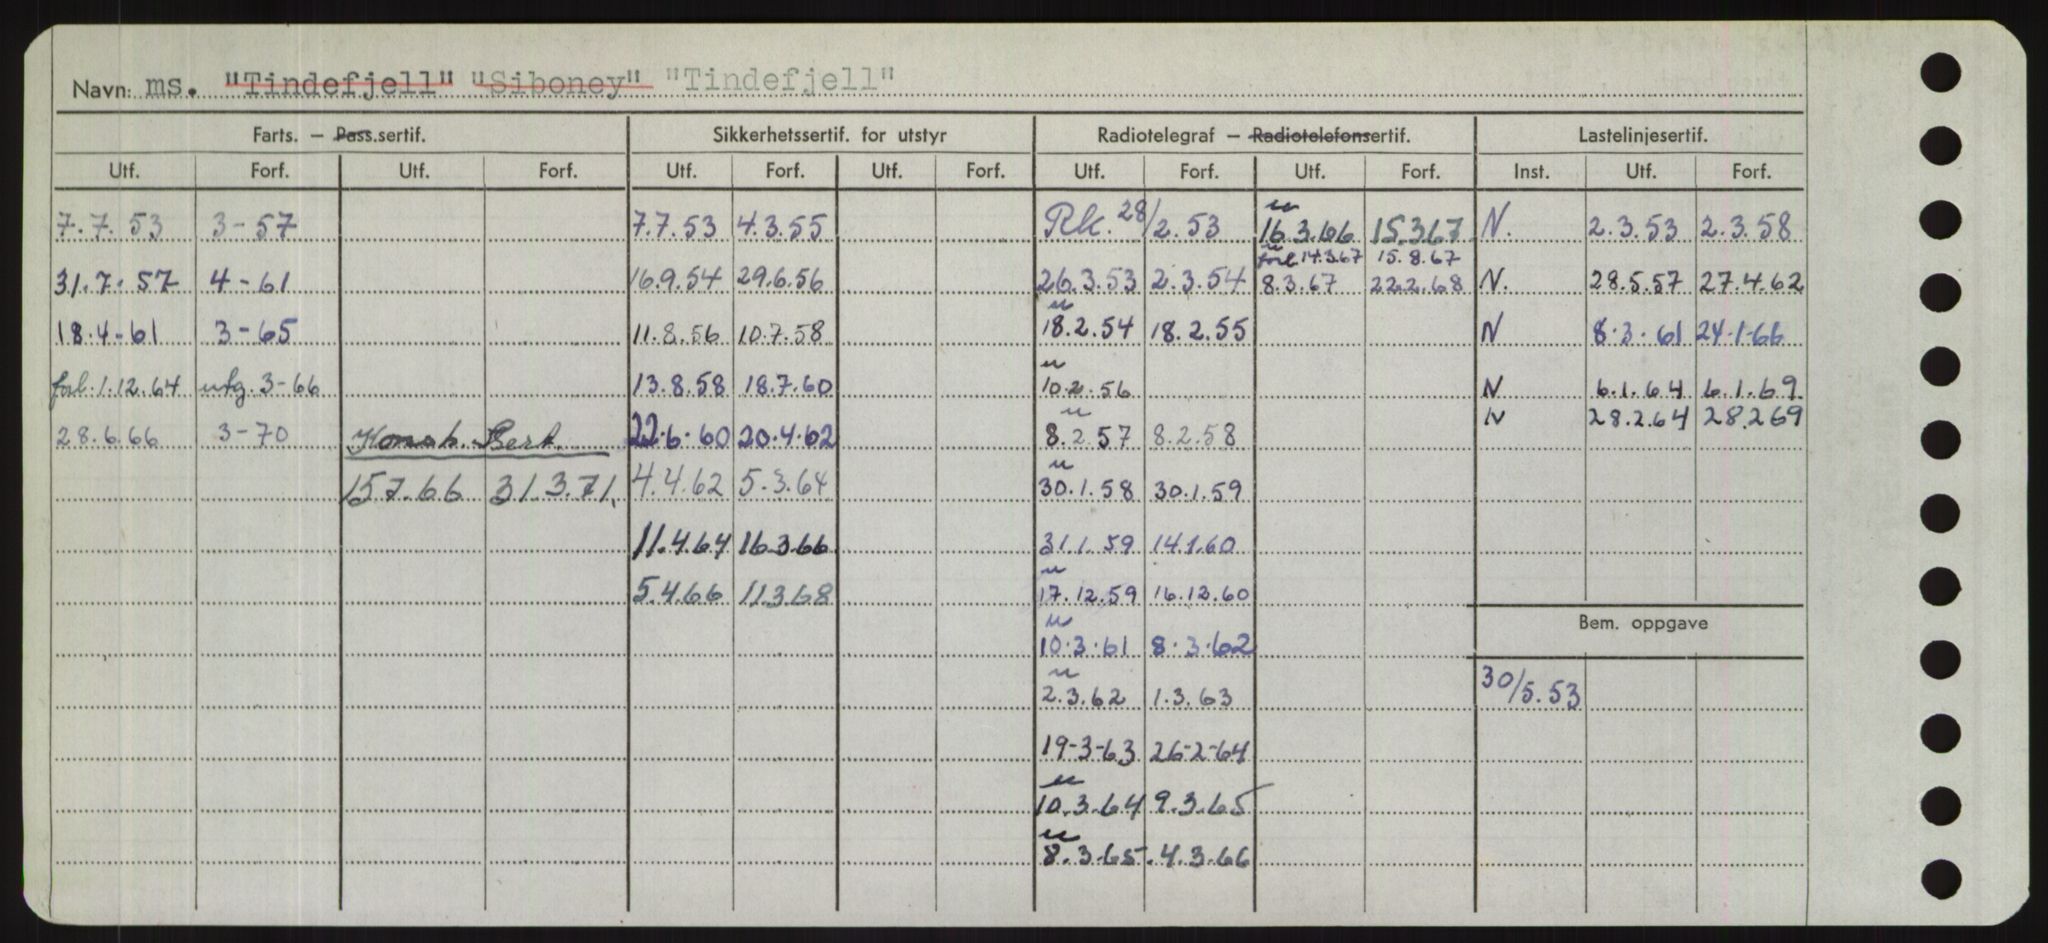 Navn: ms. "Tindefjell" "Siboney" "Tindefjell"
Farts. – Pass.sertif. Sikkerhetssertif. for utstyr Radiotelegraf – Radiotelefonsertif. Lastelinjesertif.
Utf. Forf. Utf. Forf. Utf. Forf. Utf. Forf. Utf. Forf. Utf. Forf. Inst. Utf. Forf.
7.7.53 3-57 7.7.53 4.3.55 Rk. 28/2.53 16.3.66 15.3.67 N. 2.3.53 2.3.58
forl. 14.3.67 15.8.67
31.7.57 4-61 16.9.54 29.6.56 26.3.53 2.3.54 8.3.67 22.2.68 N. 28.5.57 27.4.62
18.4-61 3-65 11.8.56 10.7.58 18.2.54 18.2.55 N 8.3.61 24.1.66
forl. 1.12.64 utg. 3-66 13.8.58 18.7.60 10.2.56 N 6.1.64 6.1.69
N 28.2.64 28.2.69
28.6.66 3-70 22.6.60 20.4.62 8.2.57 8.2.58
15.7.66 31.3.71. 4.4.62 5.3.64 30.1.58 30.1.59
11.4.64 16.3.66 31.1.59 14.1.60
5.4.66 11.3.68 17.12.59 16.12.60
Bem. oppgave
10.3.61 8.3.62
2.3.62 1.3.63 30/5.53
19-3-63 26-2-64
10.3.64 9.3.65
8.3.65. 4.3.66